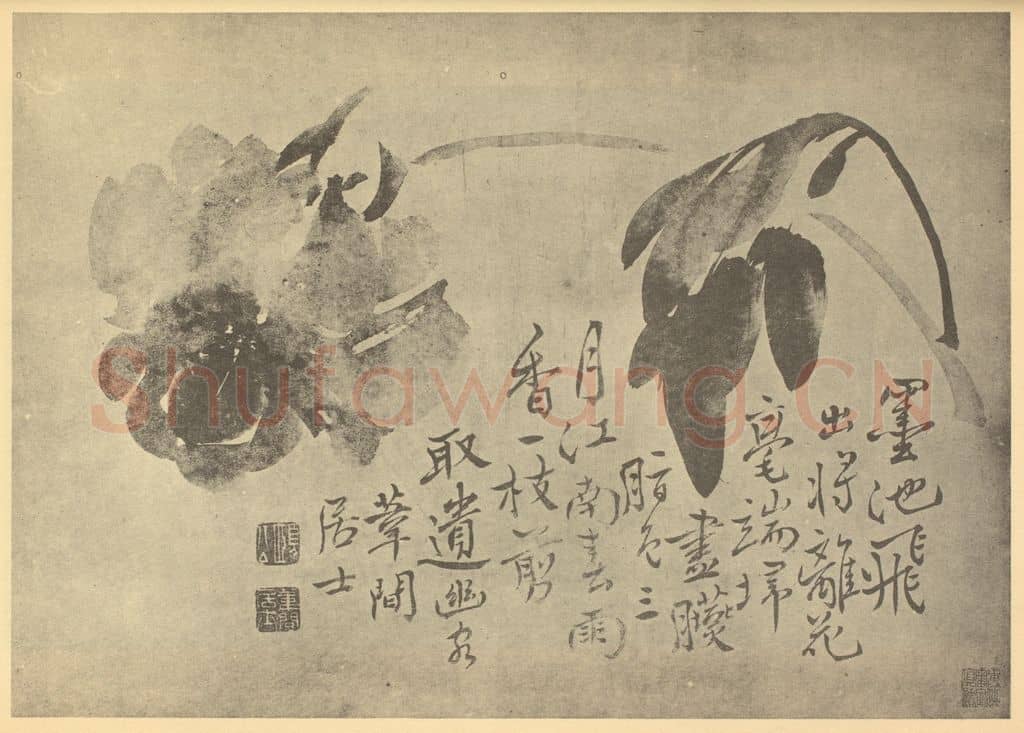 墨池飛
出將離花
毫端掃
盡臙
脂色三
月江南春雨
香一枝剪
取遺幽客
葦間
居士
頤公
葦間居士
Shufawang.CN